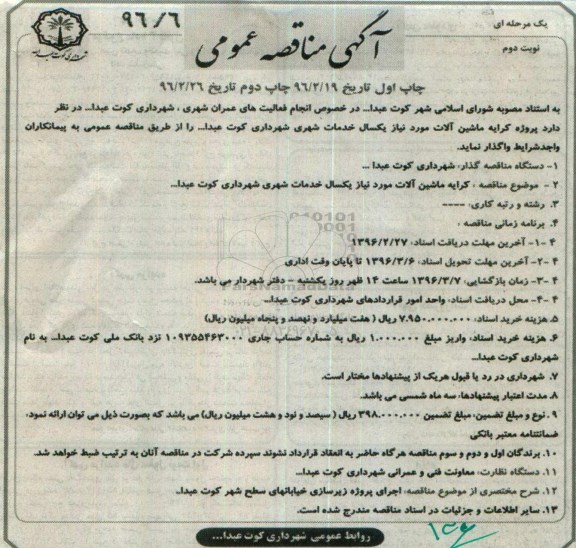 یک مرحله ای
۹۶/۶
نوبت دوم
آگهی مناقصه عمومی
شهرداری کوت عبدا...
چاپ اول تاریخ ۹۶/۲/۱۹ چاپ دوم تاریخ ۹۶/۲/۲۶
به استناد مصوبه شورای اسلامی شهر کوت عبدا... در خصوص انجام فعالیت های عمران شهری ، شهرداری کوت عبدا... در نظر
دارد پروژه کرایه ماشین آلات مورد نیاز یکسال خدمات شهری شهرداری کوت عبدا... را از طریق مناقصه عمومی به پیمانکاران
واجدشرایط واگذار نماید.
۱- دستگاه مناقصه گذار: شهرداری کوت عبدا ...
۲ - موضوع مناقصه : کرایه ماشین آلات مورد نیاز یکسال خدمات شهری شهرداری کوت عبدا...
۳. رشته و رتبه کاری: ----
۴. برنامه زمانی مناقصه :
۴ -۱- آخرین مهلت دریافت اسناد: ۱۳۹۶/۲/۲۷
۴ -۲- آخرین مهلت تحویل اسناد: ۱۳۹۶/۳/۶ تا پایان وقت اداری
۴ -۳- زمان بازگشایی: ۱۳۹۶/۳/۷ ساعت ۱۴ ظهر روز یکشنبه - دفتر شهردار می باشد.
۴ -۴- محل دریافت اسناد: واحد امور قراردادهای شهرداری کوت عبدا...
۵. هزینه خرید اسناد: ۷.۹۵۰.۰۰۰.۰۰۰ ریال ( هفت میلیارد و نهصد و پنجاه میلیون ریال)
۶. هزینه خرید اسناد: واریز مبلغ ۱.۰۰۰.۰۰۰ ریال به شماره حساب جاری ۱۰۹۳۵۵۴۶۳۰۰۰ نزد بانک ملی کوت عبدا... به نام
شهرداری کوت عبدا...
۷. شهرداری در رد یا قبول هریک از پیشنهادها مختار است.
۸. مدت اعتبار پیشنهادها: سه ماه شمسی می باشد.
۹. نوع و مبلغ تضمین: مبلغ تضمین ۳۹۸.۰۰۰.۰۰۰ ریال ( سیصد و نود و هشت میلیون ریال) می باشد که بصورت ذیل می توان ارائه نمود:
ضمانتنامه معتبر بانکی
۱۰. برندگان اول و دوم و سوم مناقصه هرگاه حاضر به انعقاد قرارداد نشوند سپرده شرکت در مناقصه آنان به ترتیب ضبط خواهد شد.
۱۱. دستگاه نظارت: معاونت فنی و عمرانی شهرداری کوت عبدا...
۱۲. شرح مختصری از موضوع مناقصه: اجرای پروژه زیرسازی خیابانهای سطح شهر کوت عبدا..
۱۳. سایر اطلاعات و جزئیات در اسناد مناقصه مندرج شده است.
روابط عمومی شهرداری کوت عبدا...